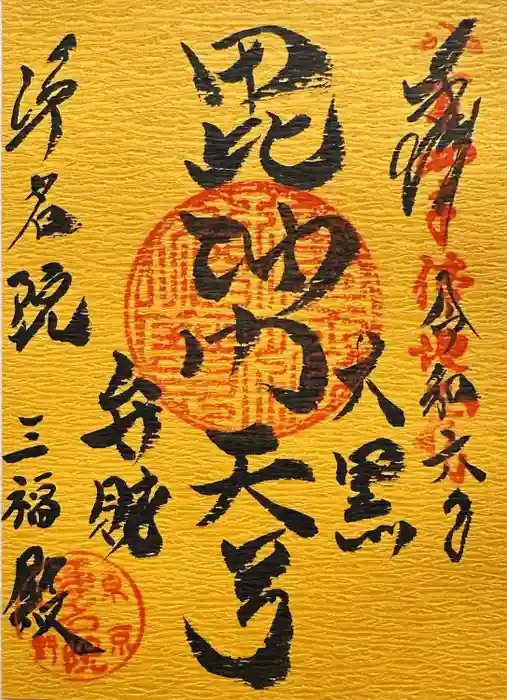 奉拝
令和六年
大黒
毘沙門天
弁財
浄名院
三福殿
東京
上野
浄名院